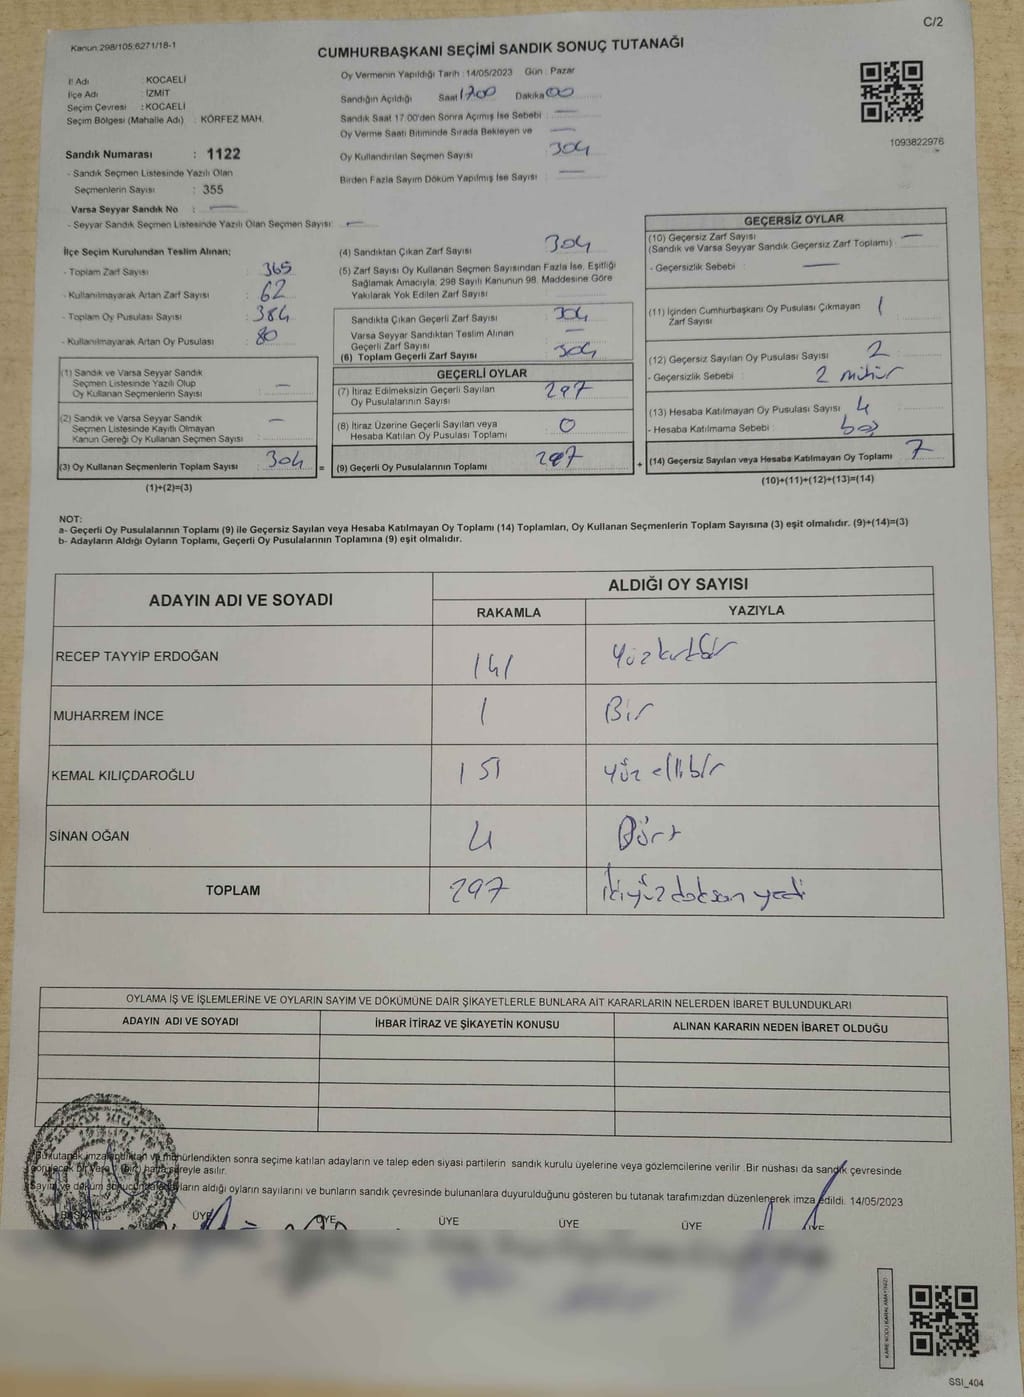 C/2
Kanun 298/105;6271/18-1
CUMHURBAŞKANI SEÇİMİ SANDIK SONUÇ TUTANAĞI
İl Adı : KOCAELİ
İlçe Adı : İZMİT
Seçim Çevresi : KOCAELİ
Seçim Bölgesi (Mahalle Adı) : KÖRFEZ MAH.
Sandık Numarası : 1122
- Sandık Seçmen Listesinde Yazılı Olan
Seçmenlerin Sayısı : 355
Varsa Seyyar Sandık No : —
- Seyyar Sandık Seçmen Listesinde Yazılı Olan Seçmen Sayısı: —
Oy Vermenin Yapıldığı Tarih : 14/05/2023 Gün : Pazar
Sandığın Açıldığı Saat 1700 Dakika 00
Sandık Saat 17.00'den Sonra Açımış İse Sebebi : —
Oy Verme Saati Bitiminde Sırada Bekleyen ve —
Oy Kullandırılan Seçmen Sayısı 304
Birden Fazla Sayım Döküm Yapılmış İse Sayısı : —
1093822976
İlçe Seçim Kurulundan Teslim Alınan;
- Toplam Zarf Sayısı : 365
- Kullanılmayarak Artan Zarf Sayısı : 62
- Toplam Oy Pusulası Sayısı : 384
- Kullanılmayarak Artan Oy Pusulası : 80
(1) Sandık ve Varsa Seyyar Sandık
Seçmen Listesinde Yazılı Olup
Oy Kullanan Seçmenlerin Sayısı : —
(2) Sandık ve Varsa Seyyar Sandık
Seçmen Listesinde Kayıtlı Olmayan
Kanun Gereği Oy Kullanan Seçmen Sayısı : —
(3) Oy Kullanan Seçmenlerin Toplam Sayısı : 304 =
(1)+(2)=(3)
(4) Sandıktan Çıkan Zarf Sayısı : 304
(5) Zarf Sayısı Oy Kullanan Seçmen Sayısından Fazla İse, Eşitliği
Sağlamak Amacıyla, 298 Sayılı Kanunun 98. Maddesine Göre
Yakılarak Yok Edilen Zarf Sayısı
Sandıkta Çıkan Geçerli Zarf Sayısı : 304
Varsa Seyyar Sandıktan Teslim Alınan
Geçerli Zarf Sayısı : —
(6) Toplam Geçerli Zarf Sayısı : 304
GEÇERLİ OYLAR
(7) İtiraz Edilmeksizin Geçerli Sayılan
Oy Pusulalarının Sayısı : 297
(8) İtiraz Üzerine Geçerli Sayılan veya
Hesaba Katılan Oy Pusulası Toplamı : 0
(9) Geçerli Oy Pusulalarının Toplamı : 297 +
GEÇERSİZ OYLAR
(10) Geçersiz Zarf Sayısı —
(Sandık ve Varsa Seyyar Sandık Geçersiz Zarf Toplamı)
- Geçersizlik Sebebi : —
(11) İçinden Cumhurbaşkanı Oy Pusulası Çıkmayan 1
Zarf Sayısı
(12) Geçersiz Sayılan Oy Pusulası Sayısı : 2
- Geçersizlik Sebebi : 2 mühür
(13) Hesaba Katılmayan Oy Pusulası Sayısı : 4
- Hesaba Katılmama Sebebi : boş
(14) Geçersiz Sayılan veya Hesaba Katılmayan Oy Toplamı : 7
(10)+(11)+(12)+(13)=(14)
NOT:
a- Geçerli Oy Pusulalarının Toplamı (9) ile Geçersiz Sayılan veya Hesaba Katılmayan Oy Toplamı (14) Toplamları, Oy Kullanan Seçmenlerin Toplam Sayısına (3) eşit olmalıdır. (9)+(14)=(3)
b- Adayların Aldığı Oyların Toplamı, Geçerli Oy Pusulalarının Toplamına (9) eşit olmalıdır.
ADAYIN ADI VE SOYADI
ALDIĞI OY SAYISI
RAKAMLA YAZIYLA
RECEP TAYYİP ERDOĞAN 141 Yüzkırkbir
MUHARREM İNCE 1 Bir
KEMAL KILIÇDAROĞLU 151 Yüz ellibir
SİNAN OĞAN 4 Dört
TOPLAM 297 İkiyüz doksan yedi
OYLAMA İŞ VE İŞLEMLERİNE VE OYLARIN SAYIM VE DÖKÜMÜNE DAİR ŞİKAYETLERLE BUNLARA AİT KARARLARIN NELERDEN İBARET BULUNDUKLARI
ADAYIN ADI VE SOYADI İHBAR İTİRAZ VE ŞİKAYETİN KONUSU ALINAN KARARIN NEDEN İBARET OLDUĞU
mühürlendikten sonra seçime katılan adayların ve talep eden siyasi partilerin sandık kurulu üyelerine veya gözlemcilerine verilir. Bir nüshası da sandık çevresinde
(bir) hafta süreyle asılır.
aldığı oyların sayılarını ve bunların sandık çevresinde bulunanlara duyurulduğunu gösteren bu tutanak tarafımızdan düzenlenerek imza edildi. 14/05/2023
ÜYE ÜYE ÜYE ÜYE ÜYE ÜYE
KARE KODU KARALAMAYINIZ!
SSI_404